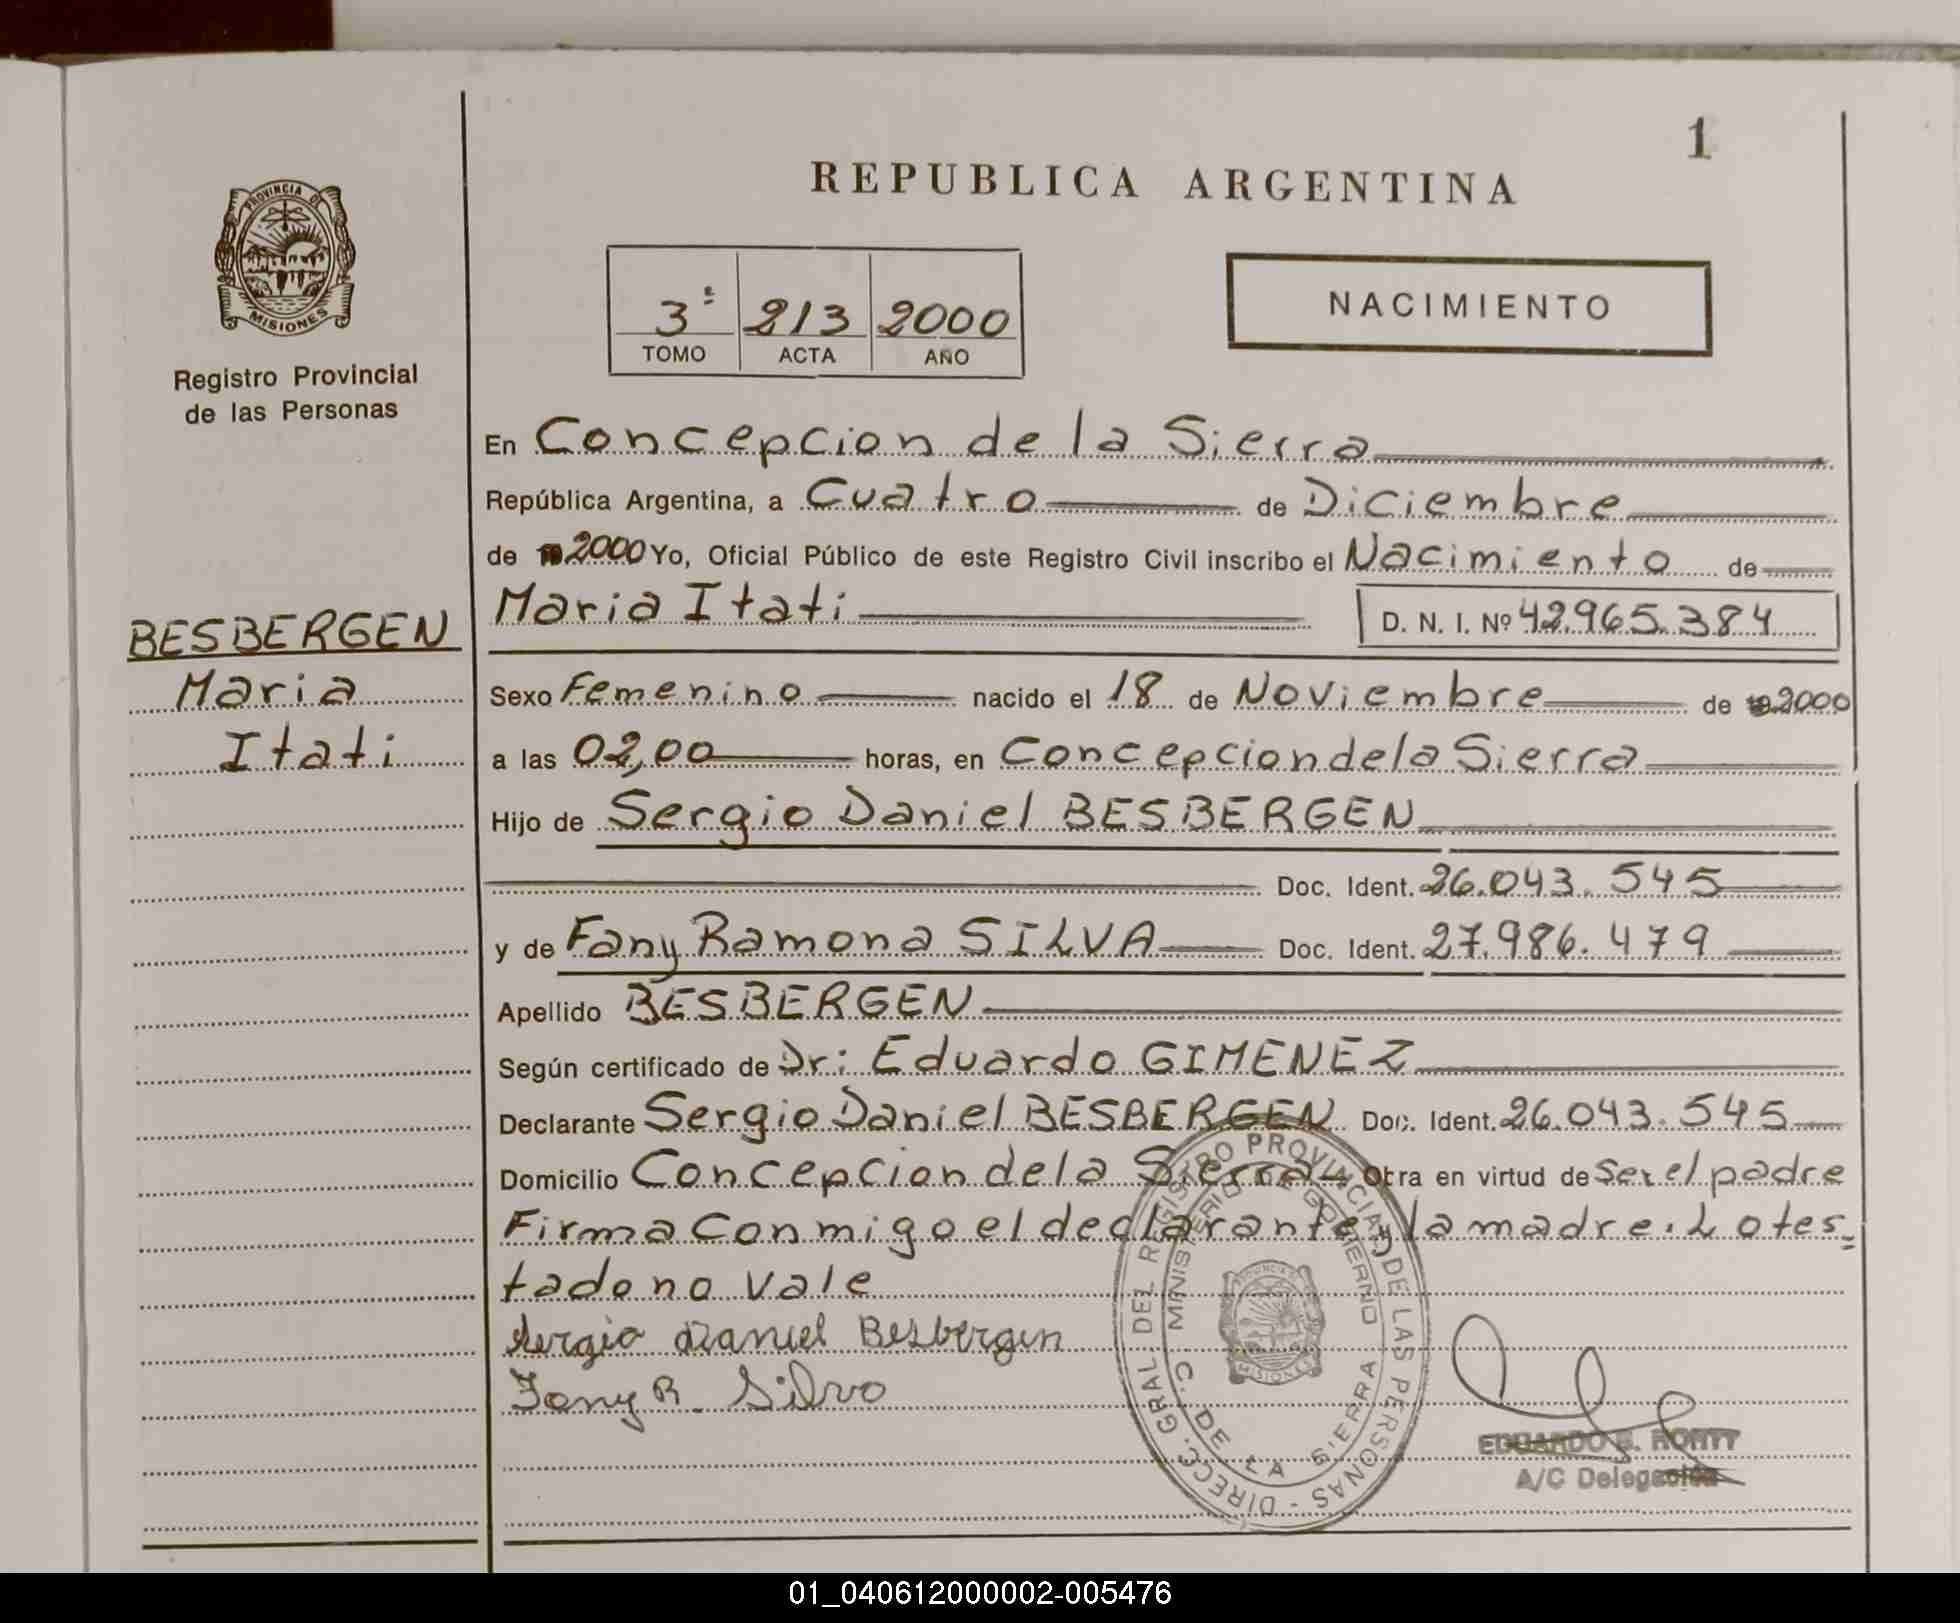 1
REPUBLICA ARGENTINA
PROVINCIA DE
MISIONES
Registro Provincial
de las Personas
3º 213 2000
TOMO ACTA AÑO
NACIMIENTO
En Concepcion de la Sierra
República Argentina, a Cuatro de Diciembre
de 2000 Yo, Oficial Público de este Registro Civil inscribo el Nacimiento de
Maria Itati D. N. I. Nº 42.965.384
BESBERGEN
Maria
Itati
Sexo Femenino nacido el 18 de Noviembre de 2000
a las 02,00 horas, en Concepcion de la Sierra
Hijo de Sergio Daniel BESBERGEN
Doc. Ident. 26.043.545
y de Fany Ramona SILVA Doc. Ident. 27.986.479
Apellido BESBERGEN
Según certificado de Dr: Eduardo GIMENEZ
Declarante Sergio Daniel BESBERGEN Doc. Ident. 26.043.545
Domicilio Concepcion de la Sierra Obra en virtud de Ser el padre
Firma Conmigo el declarante y la madre. Lo tes=
tado no Vale
Sergio Daniel Besbergen
Fany R. Silva
DIRECC. GRAL. DEL REGISTRO PROVINCIAL DE LAS PERSONAS -
MINISTERIO DE GOBIERNO
C. DE LA SIERRA
MISIONES
EDUARDO
A/C Delegación
01_040612000002-005476